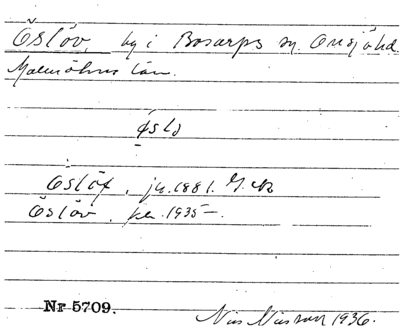 Öslöv, by i Bosarps sn. Onsjö hd.
Malmöhus län.
Öslöf. jk. 1881.
Öslöv. 1935–.
Nr 5709.
Nils Nilsson 1936.